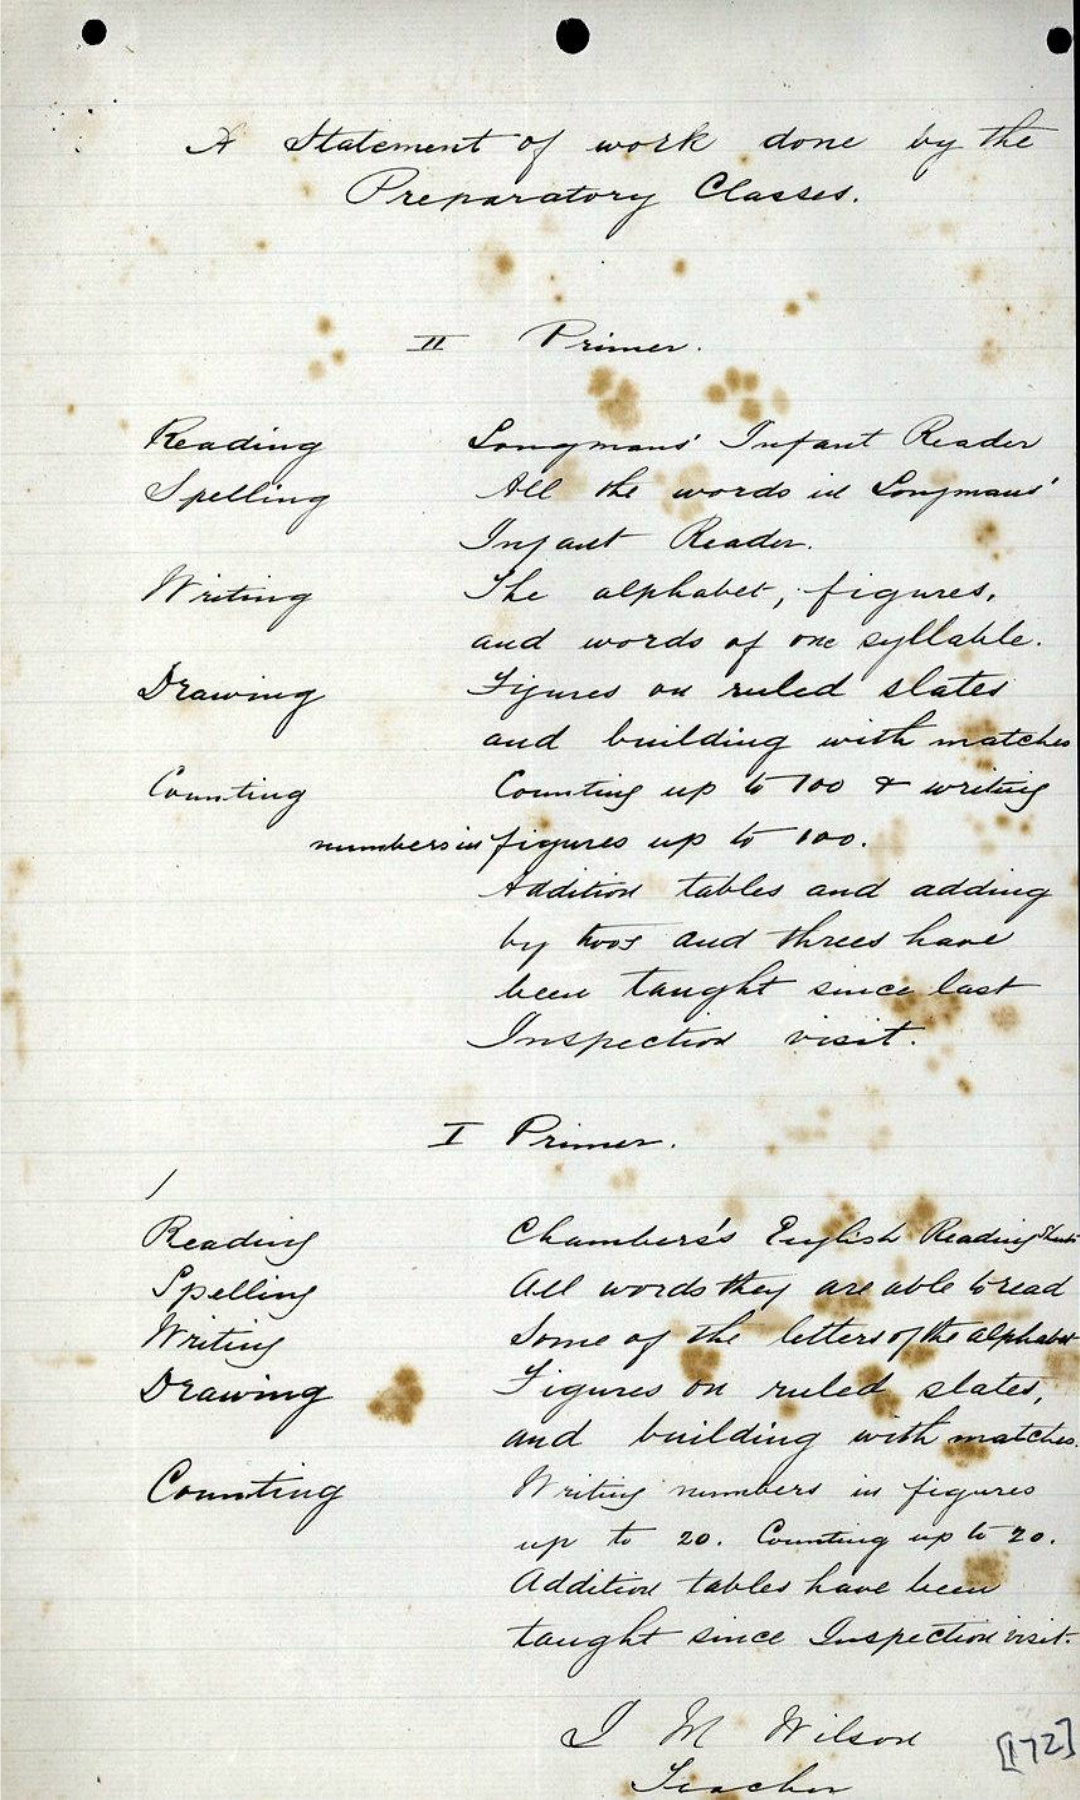 A Statement of work done by the
Preparatory Classes.
II Primer.
Reading Longmans' Infant Reader
Spelling All the words in Longmans'
Infant Reader.
Writing The alphabet, figures,
and words of one syllable.
Drawing Figures on ruled slates
and building with matches
Counting Counting up to 100 & writing
numbers in figures up to 100.
Addition tables and adding
by twos and threes have
been taught since last
Inspection visit.
I Primer.
/
Reading Chambers's English Reading Sheets
Spelling All words they are able to read
Writing Some of the letters of the alphabet
Drawing Figures on ruled slates,
and building with matches.
Counting Writing numbers in figures
up to 20. Counting up to 20.
Addition tables have been
taught since Inspection visit.
I M Wilson
Teacher
[172]